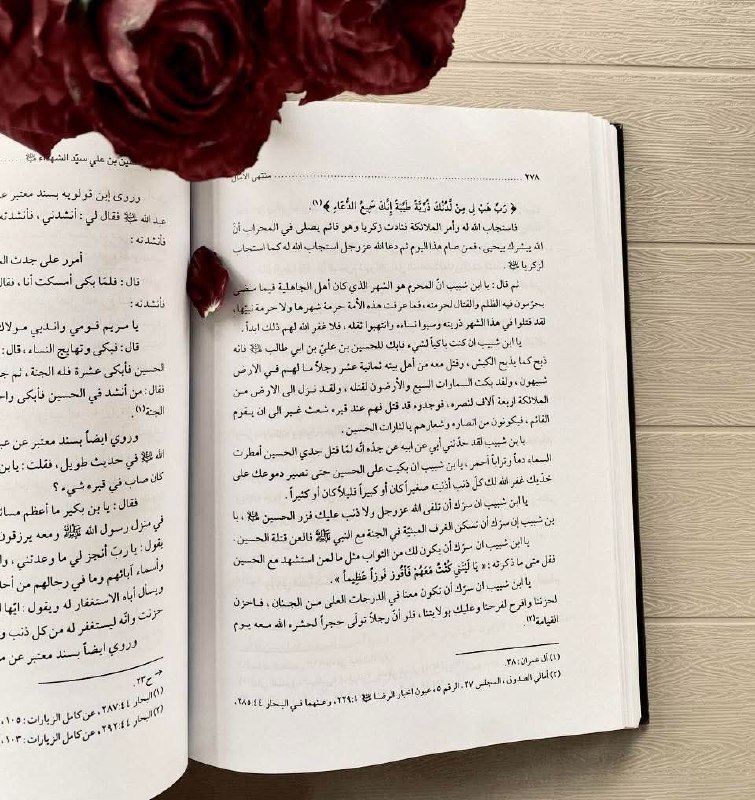 ٢٧٨ ........ منتهى الآمال
﴿ رَبِّ هَبْ لِي مِنْ لَدُنْكَ ذُرِّيَّةً طَيِّبَةً إِنَّكَ سَمِيعُ الدُّعَاءِ ﴾(١).
فاستجاب الله له وأمر الملائكة فنادت زكريا وهو قائم يصلي في المحراب أنّ
الله يبشرك بيحيى، فمن صام هذا اليوم ثم دعا الله عز وجل استجاب الله له كما استجاب
لزكريا ﷺ .
ثم قال: يا ابن شبيب انّ المحرم هو الشهر الذي كان أهل الجاهلية فيما مضى
يحرّمون فيه الظلم والقتال لحرمته، فما عرفت هذه الأمة حرمة شهرها ولا حرمة نبيّها،
لقد قتلوا في هذا الشهر ذريته وسبوا نساءه وانتهبوا ثقله، فلا غفر الله لهم ذلك ابداً.
يا ابن شبيب ان كنت باكياً لشيء فابك للحسين بن عليّ بن ابي طالب ﷺ فانه
ذبح كما يذبح الكبش، وقتل معه من أهل بيته ثمانية عشر رجلاً ما لهم في الارض
شبيهون، ولقد بكت السماوات السبع والأرضون لقتله، ولقد نزل الى الارض من
الملائكة اربعة آلاف لنصره، فوجدوه قد قتل فهم عند قبره شعث غبر الى ان يقوم
القائم، فيكونون من انصاره وشعارهم يا لثارات الحسين.
يا بن شبيب لقد حدّثني أبي عن ابيه عن جدّه أنّه لمّا قتل جدي الحسين أمطرت
السماء دماً وتراباً أحمر، يا بن شبيب ان بكيت على الحسين حتى تصير دموعك على
خدّيك غفر الله لك كلّ ذنب أذنبته صغيراً كان أو كبيراً قليلاً كان أو كثيراً.
يا ابن شبيب ان سرّك أن تلقى الله عزوجل ولا ذنب عليك فزر الحسين ﷺ، يا
بن شبيب إن سرّك أن تسكن الغرف المبنيّة في الجنة مع النبي ﷺ فالعن قتلة الحسين.
يا ابن شبيب ان سرّك أن يكون لك من الثواب مثل ما لمن استشهد مع الحسين
فقل متى ما ذكرته: « يَا لَيْتَنِي كُنْتُ مَعَهُمْ فَأَفُوزَ فَوْزاً عَظِيماً ».
يا ابن شبيب ان سرّك أن تكون معنا في الدرجات العلى من الجنان، فاحزن
لحزننا وافرح لفرحنا وعليك بولايتنا، فلو أنّ رجلاً تولّى حجراً لحشره الله معه يوم
القيامة(٢).
(١) آل عمران: ٣٨.
(٢) أمالي الصدوق، المجلس ٢٧، الرقم ٥، عيون اخبار الرضا ﷺ ١: ٢٢٩، وعنهما في البحار ٤٤: ٢٨٥.
ين بن علي سيّد الشهداء ﷺ
وروى ابن قولويه بسند معتبر عن
عبد الله ﷺ فقال لي: أنشدني، فأنشدته
فأنشدته :
أمرر على جدث
قال: فلمّا بكى أمسكت أنا، فقال
فأنشدته :
يا مريم قومي واندبي مولاك
قال: فبكى وتهايج النساء، قال:
الحسين فأبكى عشرة فله الجنة، ثم
فقال: من أنشد في الحسين فأبكى
الجنة(١).
وروي ايضاً بسند معتبر عن
الله ﷺ في حديث طويل، فقلت: يا بن
كان صاب في قبره شيء ؟
فقال: يا بن بكير ما أعظم
في منزل رسول الله ﷺ ومعه يرزقون
يقول: يا ربّ أنجز لي ما وعدتني،
وأسماء آبائهم وما في رحالهم من
ويسأل أباه الاستغفار له ويقول: ايّها
حزنت وانّه ليستغفر له من كل ذنب
وروي ايضاً بسند معتبر عن
→ ح٢٣.
(١) البحار ٤٤: ٢٨٧، عن كامل الزيارات: ١٠٥،
(٢) البحار ٤٤: ٢٩٢، عن كامل الزيارات: ١٠٣،